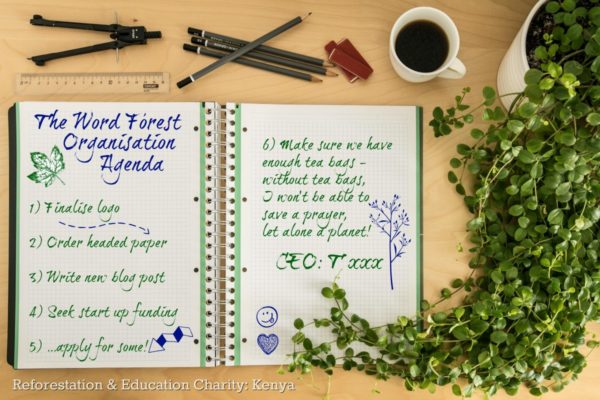 The Word Forest
Organisation
Agenda
1) Finalise logo
2) Order headed paper
3) Write new blog post
4) Seek start up funding
5) ...apply for some!
6) Make sure we have
enough tea bags -
without tea bags,
I won't be able to
save a prayer,
let alone a planet!
CEO: T xxx
Reforestation & Education Charity: Kenya